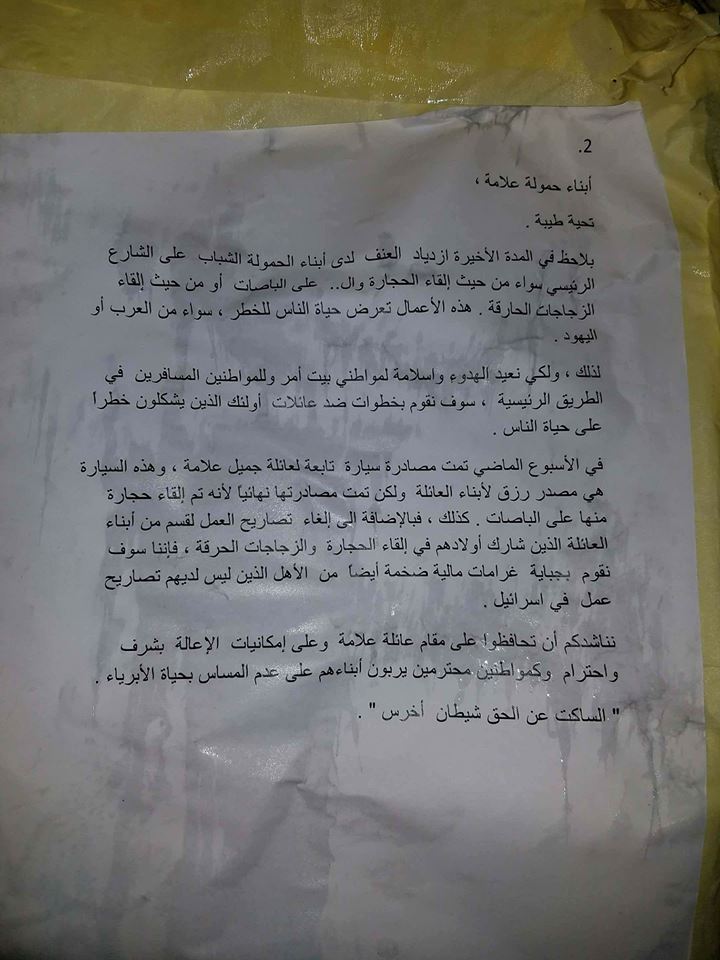 2.
أبناء حمولة علامة ،
تحية طيبة .
بلاحظ في المدة الأخيرة ازدياد العنف لدى أبناء الحمولة الشباب على الشارع
الرئيسي سواء من حيث إلقاء الحجارة وال.. على الباصات أو من حيث إلقاء
الزجاجات الحارقة . هذه الأعمال تعرض حياة الناس للخطر ، سواء من العرب أو
اليهود .
لذلك ، ولكي نعيد الهدوء واسلامة لمواطني بيت أمر وللمواطنين المسافرين في
الطريق الرئيسية ، سوف نقوم بخطوات ضد عائلات أولئك الذين يشكلون خطراً
على حياة الناس .
في الأسبوع الماضي تمت مصادرة سيارة تابعة لعائلة جميل علامة ، وهذه السيارة
هي مصدر رزق لأبناء العائلة ولكن تمت مصادرتها نهائياً لأنه تم إلقاء حجارة
منها على الباصات . كذلك ، فبالإضافة الى إلغاء تصاريح العمل لقسم من أبناء
العائلة الذين شارك أولادهم في إلقاء الحجارة والزجاجات الحرقة ، فإننا سوف
نقوم بجباية غرامات مالية ضخمة أيضاً من الأهل الذين ليس لديهم تصاريح
عمل في اسرائيل .
نناشدكم أن تحافظوا على مقام عائلة علامة وعلى إمكانيات الإعالة بشرف
واحترام وكمواطنين محترمين يربون أبناءهم على عدم المساس بحياة الأبرياء .
" الساكت عن الحق شيطان أخرس " .